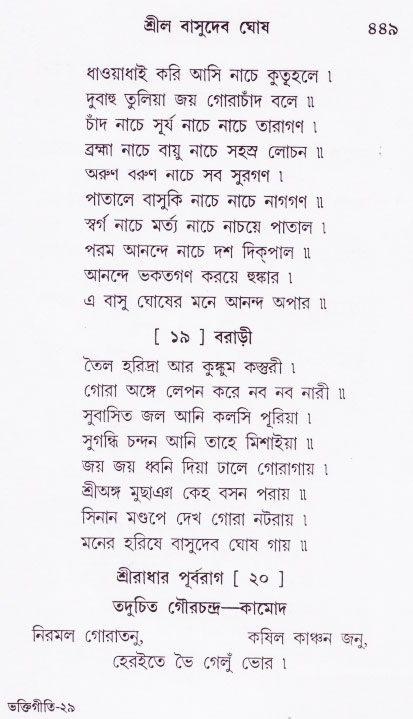 শ্রীল বাসুদেব ঘোষ ৪৪৯
ধাওয়াধাই করি আসি নাচে কুতূহলে ।
দুবাহু তুলিয়া জয় গোরাচাঁদ বলে ॥
চাঁদ নাচে সূর্য নাচে নাচে তারাগণ ।
ব্রহ্মা নাচে বায়ু নাচে সহস্র লোচন ॥
অরুণ বরুণ নাচে সব সুরগণ ।
পাতালে বাসুকি নাচে নাচে নাগগণ ॥
স্বর্গ নাচে মর্ত্য নাচে নাচয়ে পাতাল ।
পরম আনন্দে নাচে দশ দিক্‌পাল ॥
আনন্দে ভকতগণ করয়ে হুঙ্কার ।
এ বাসু ঘোষের মনে আনন্দ অপার ॥
[ ১৯ ] বরাড়ী
তৈল হরিদ্রা আর কুঙ্কুম কস্তুরী ।
গোরা অঙ্গে লেপন করে নব নব নারী ॥
সুবাসিত জল আনি কলসি পূরিয়া ।
সুগন্ধি চন্দন আনি তাহে মিশাইয়া ॥
জয় জয় ধ্বনি দিয়া ঢালে গোরাগায় ।
শ্রীঅঙ্গ মুছাঞা কেহ বসন পরায় ॥
সিনান মণ্ডপে দেখ গোরা নটরায় ।
মনের হরিষে বাসুদেব ঘোষ গায় ॥
শ্রীরাধার পূর্বরাগ [ ২০ ]
তদুচিত গৌরচন্দ্র—কামোদ
নিরমল গোরাতনু, কষিল কাঞ্চন জনু,
হেরইতে ভৈ গেলুঁ ভোর ।
ভক্তিগীতি-২৯